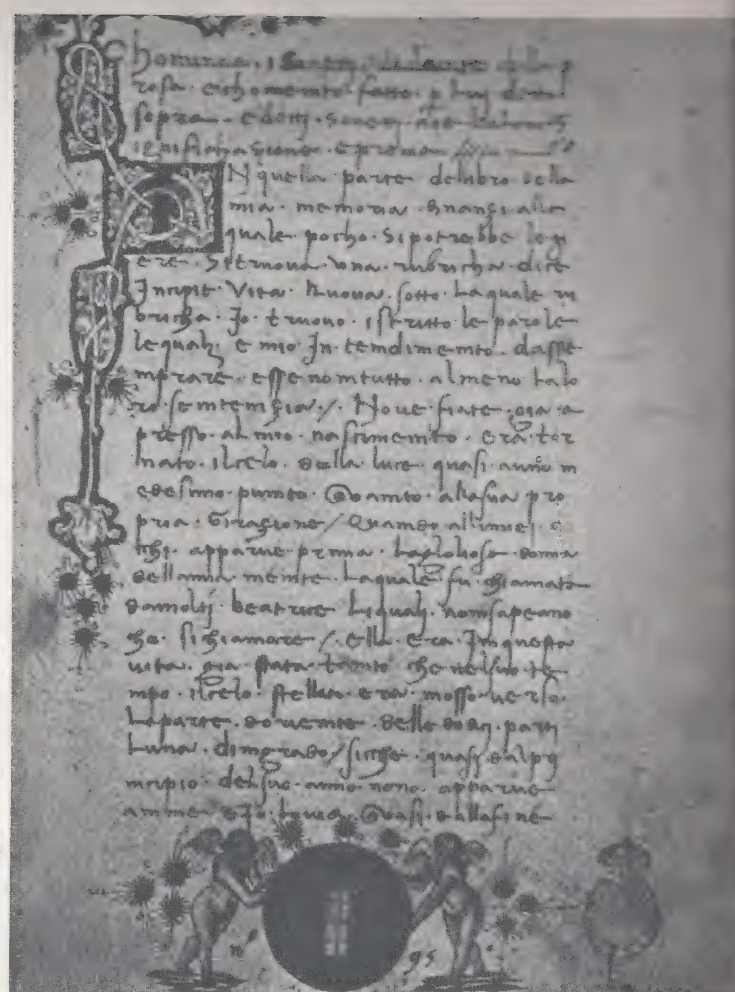 homincia, i Sonetj di dante della p
rosa. echomento fatto. p luj di
sopra. edettj. Sonetj
ignifichazione. eprema
N quella parte delibro della
mia. memoria. dnanzi alla
quale. pocho. Sipotrebbe leg
ere. Sitruova. vna. rubricha. dice
Incipit. Vita. Nuova. sotto. laquale ru
bricha. Io. truovo. iscritto le parole
lequalj. e mio In temdimemto. dasse
mprare. esse nomtutto. almeno lalo
ro. semtemzia /. Nove fiate. gia. a
presso. al mio. nascimemto. era. tor
nato. ilcelo. della luce. quasi. anno m
edesimo. pumto. Quamto. allasua pro
pria. Girazione / Quamdo allimiei. o
chi. apparve prima. laglohosa. donna
dellamia memte. laquale fu. chiamata
damoltj. beatrice liqualj. nomsapeano
che. sichiamare /. ella. era. Imquesta
vita. gia stata tamto che nelsuo te
mpo. ilcelo. stellata. era. mosso verso.
laparte. dorvemte. delle dodcj. partj
luna. dimgrado / sicche. quasj dalprj
mcipio. delsuo. anno. nono. apparve
amme. e Io. lavidj. Quasi. dallafine
n° 95